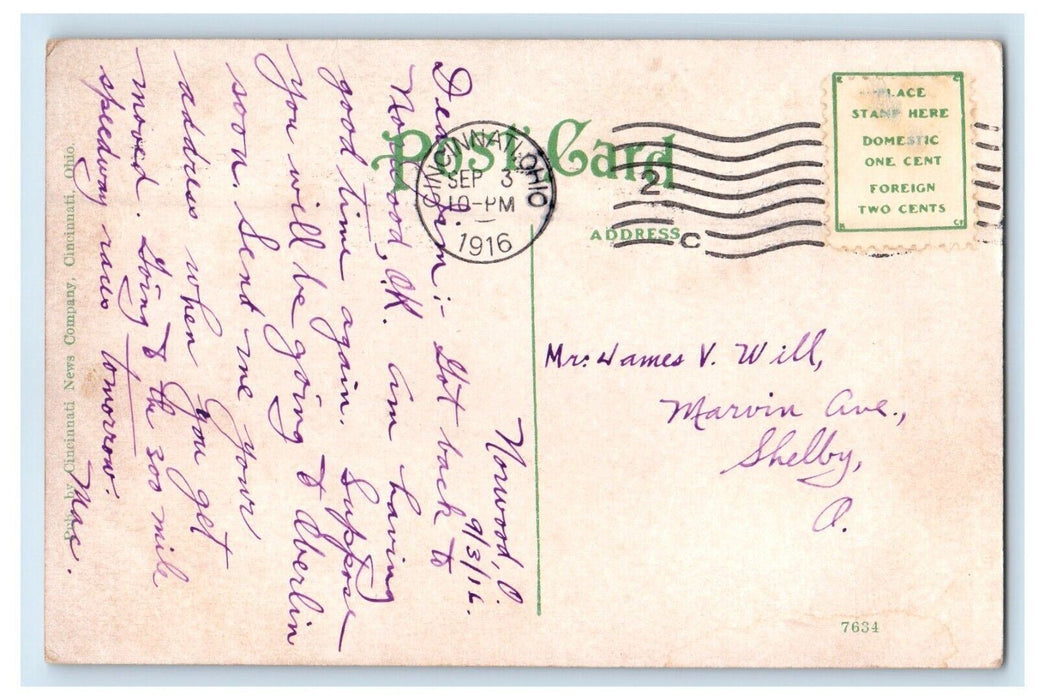 Post Card
CINCINNATI, OHIO
SEP 3
10-PM
1916
2
C
PLACE
STAMP HERE
DOMESTIC
ONE CENT
FOREIGN
TWO CENTS
ADDRESS
Norwood, O.
9/3/16.
Dear Jim:- Got back to
Norwood, O.K. am having
good time again. Suppose
you will be going to Oberlin
soon. Send me your
address when you get
moved. Going to the 300 mile
speedway races tomorrow.
Mac.
Mr. James V. Will,
Marvin Ave.,
Shelby,
O.
Pub. by Cincinnati News Company, Cincinnati, Ohio.
7634